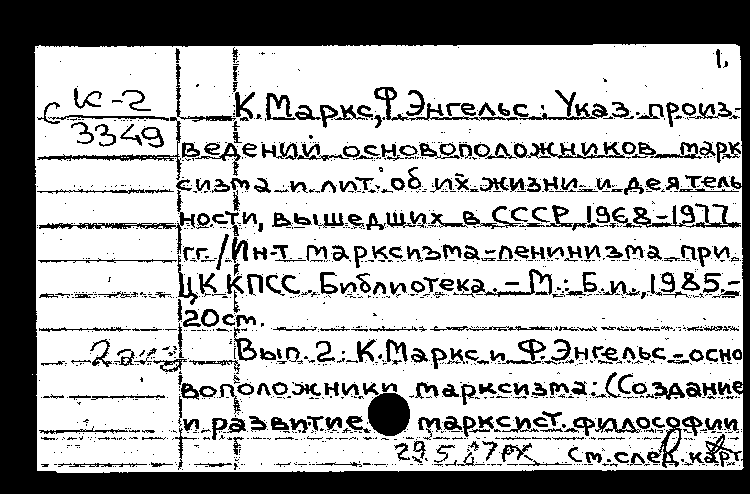 1.
С К-2
3349
К.Маркс, Ф.Энгельс: Указ. произ-
ведений основоположников марк
сизма и лит. об их жизни и деятель
ности, вышедших в СССР, 1968-1977
гг./Ин-т марксизма-ленинизма при
ЦК КПСС. Библиотека. - М.: Б.и., 1985.-
20см.
2 экз
Вып. 2: К.Маркс и Ф.Энгельс - осно
воположники марксизма: (Создание
и развитие марксист. философии
29.5.87 РХ См. след. карт